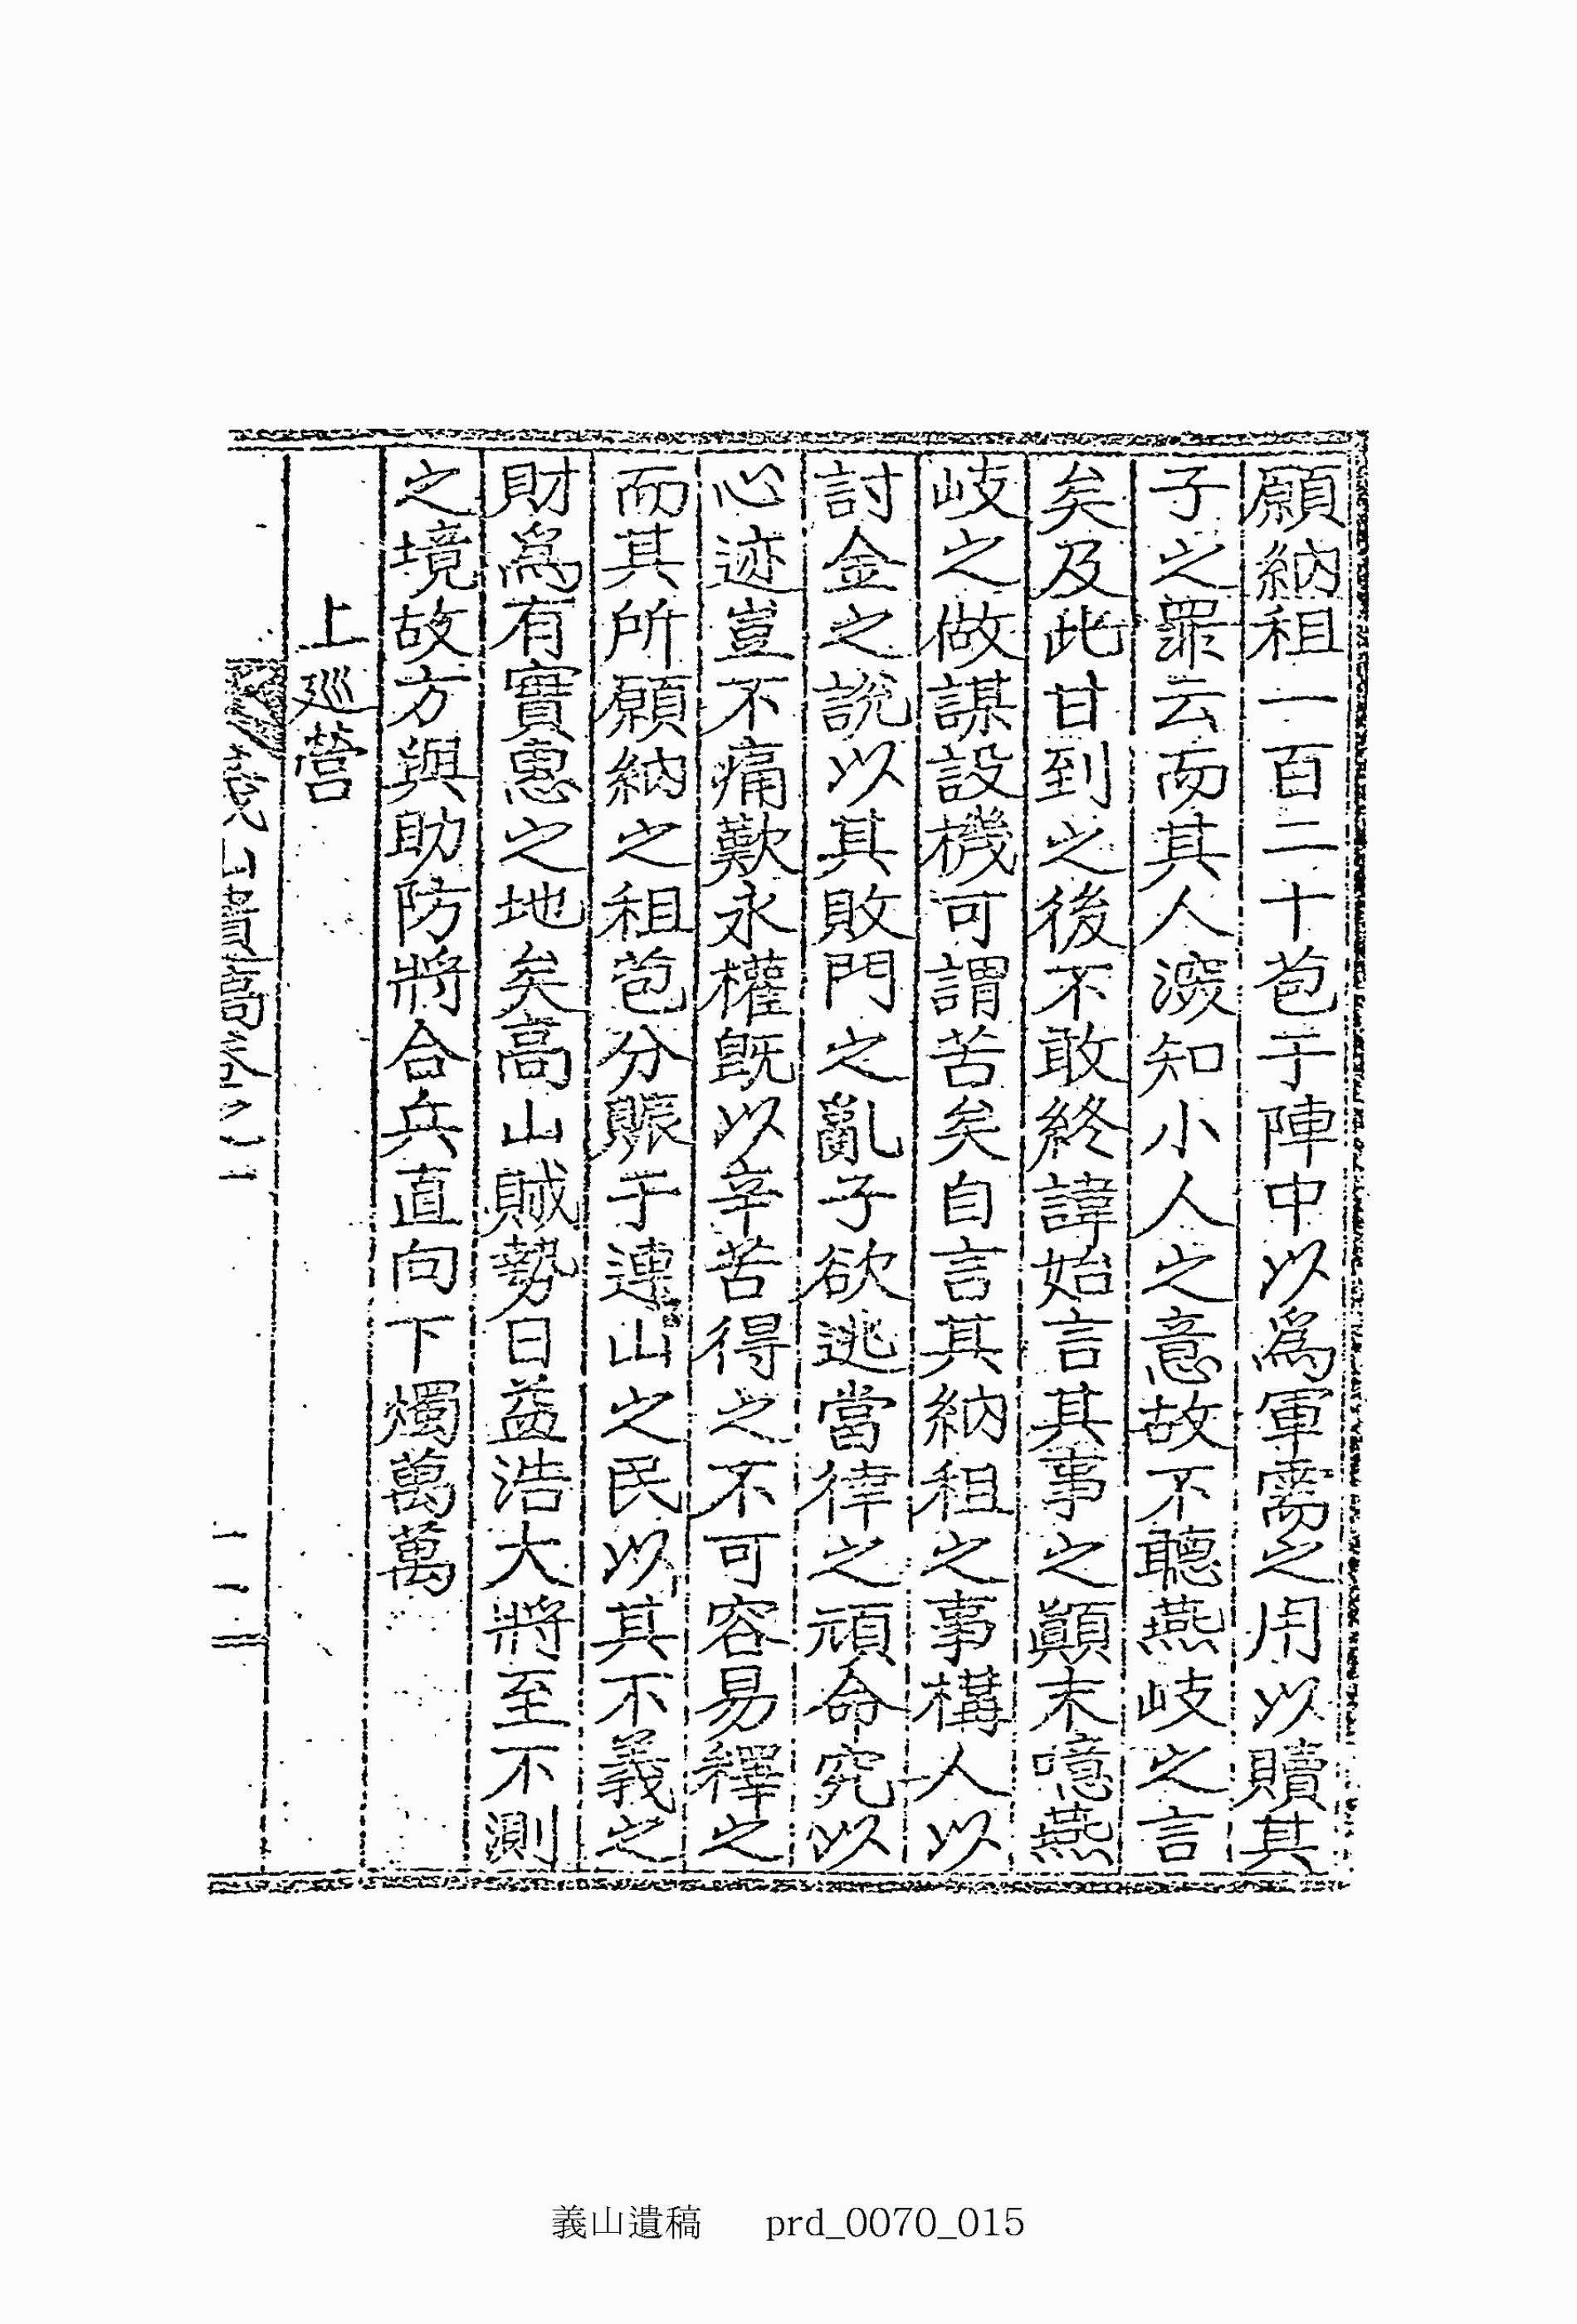 願納租一百二十苞于陣中以爲軍需之用以贖其
子之罪云而其人深知小人之意故不聽燕岐之言
矣及此甘到之後不敢終諱始言其事之顚末噫燕
岐之做謀設機可謂苦矣自言其納租之事構人以
討金之說以其敗門之亂子欲逃當律之頑命究以
心迹豈不痛歎永權旣以辛苦得之不可容易釋之
而其所願納之租苞分賑于連山之民以其不義之
財爲有實惠之地矣高山賊勢日益浩大將至不測
之境故方與助防將合兵直向下燭萬萬
上廵營
義山遺稿卷之二
二
義山遺稿 prd_0070_015